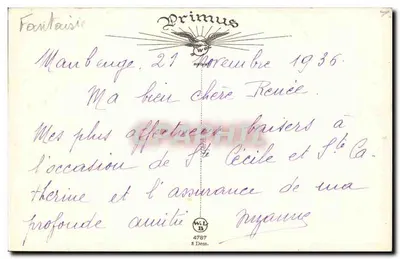 Fantaisie
Primus
Maubeuge. 21 Novembre 1936.
Ma bien chère Renée.
Mes plus affectueux baisers à
l'occasion de Ste Cécile et Ste Ca-
therine et l'assurance de ma
profonde amitié Suzanne
4787